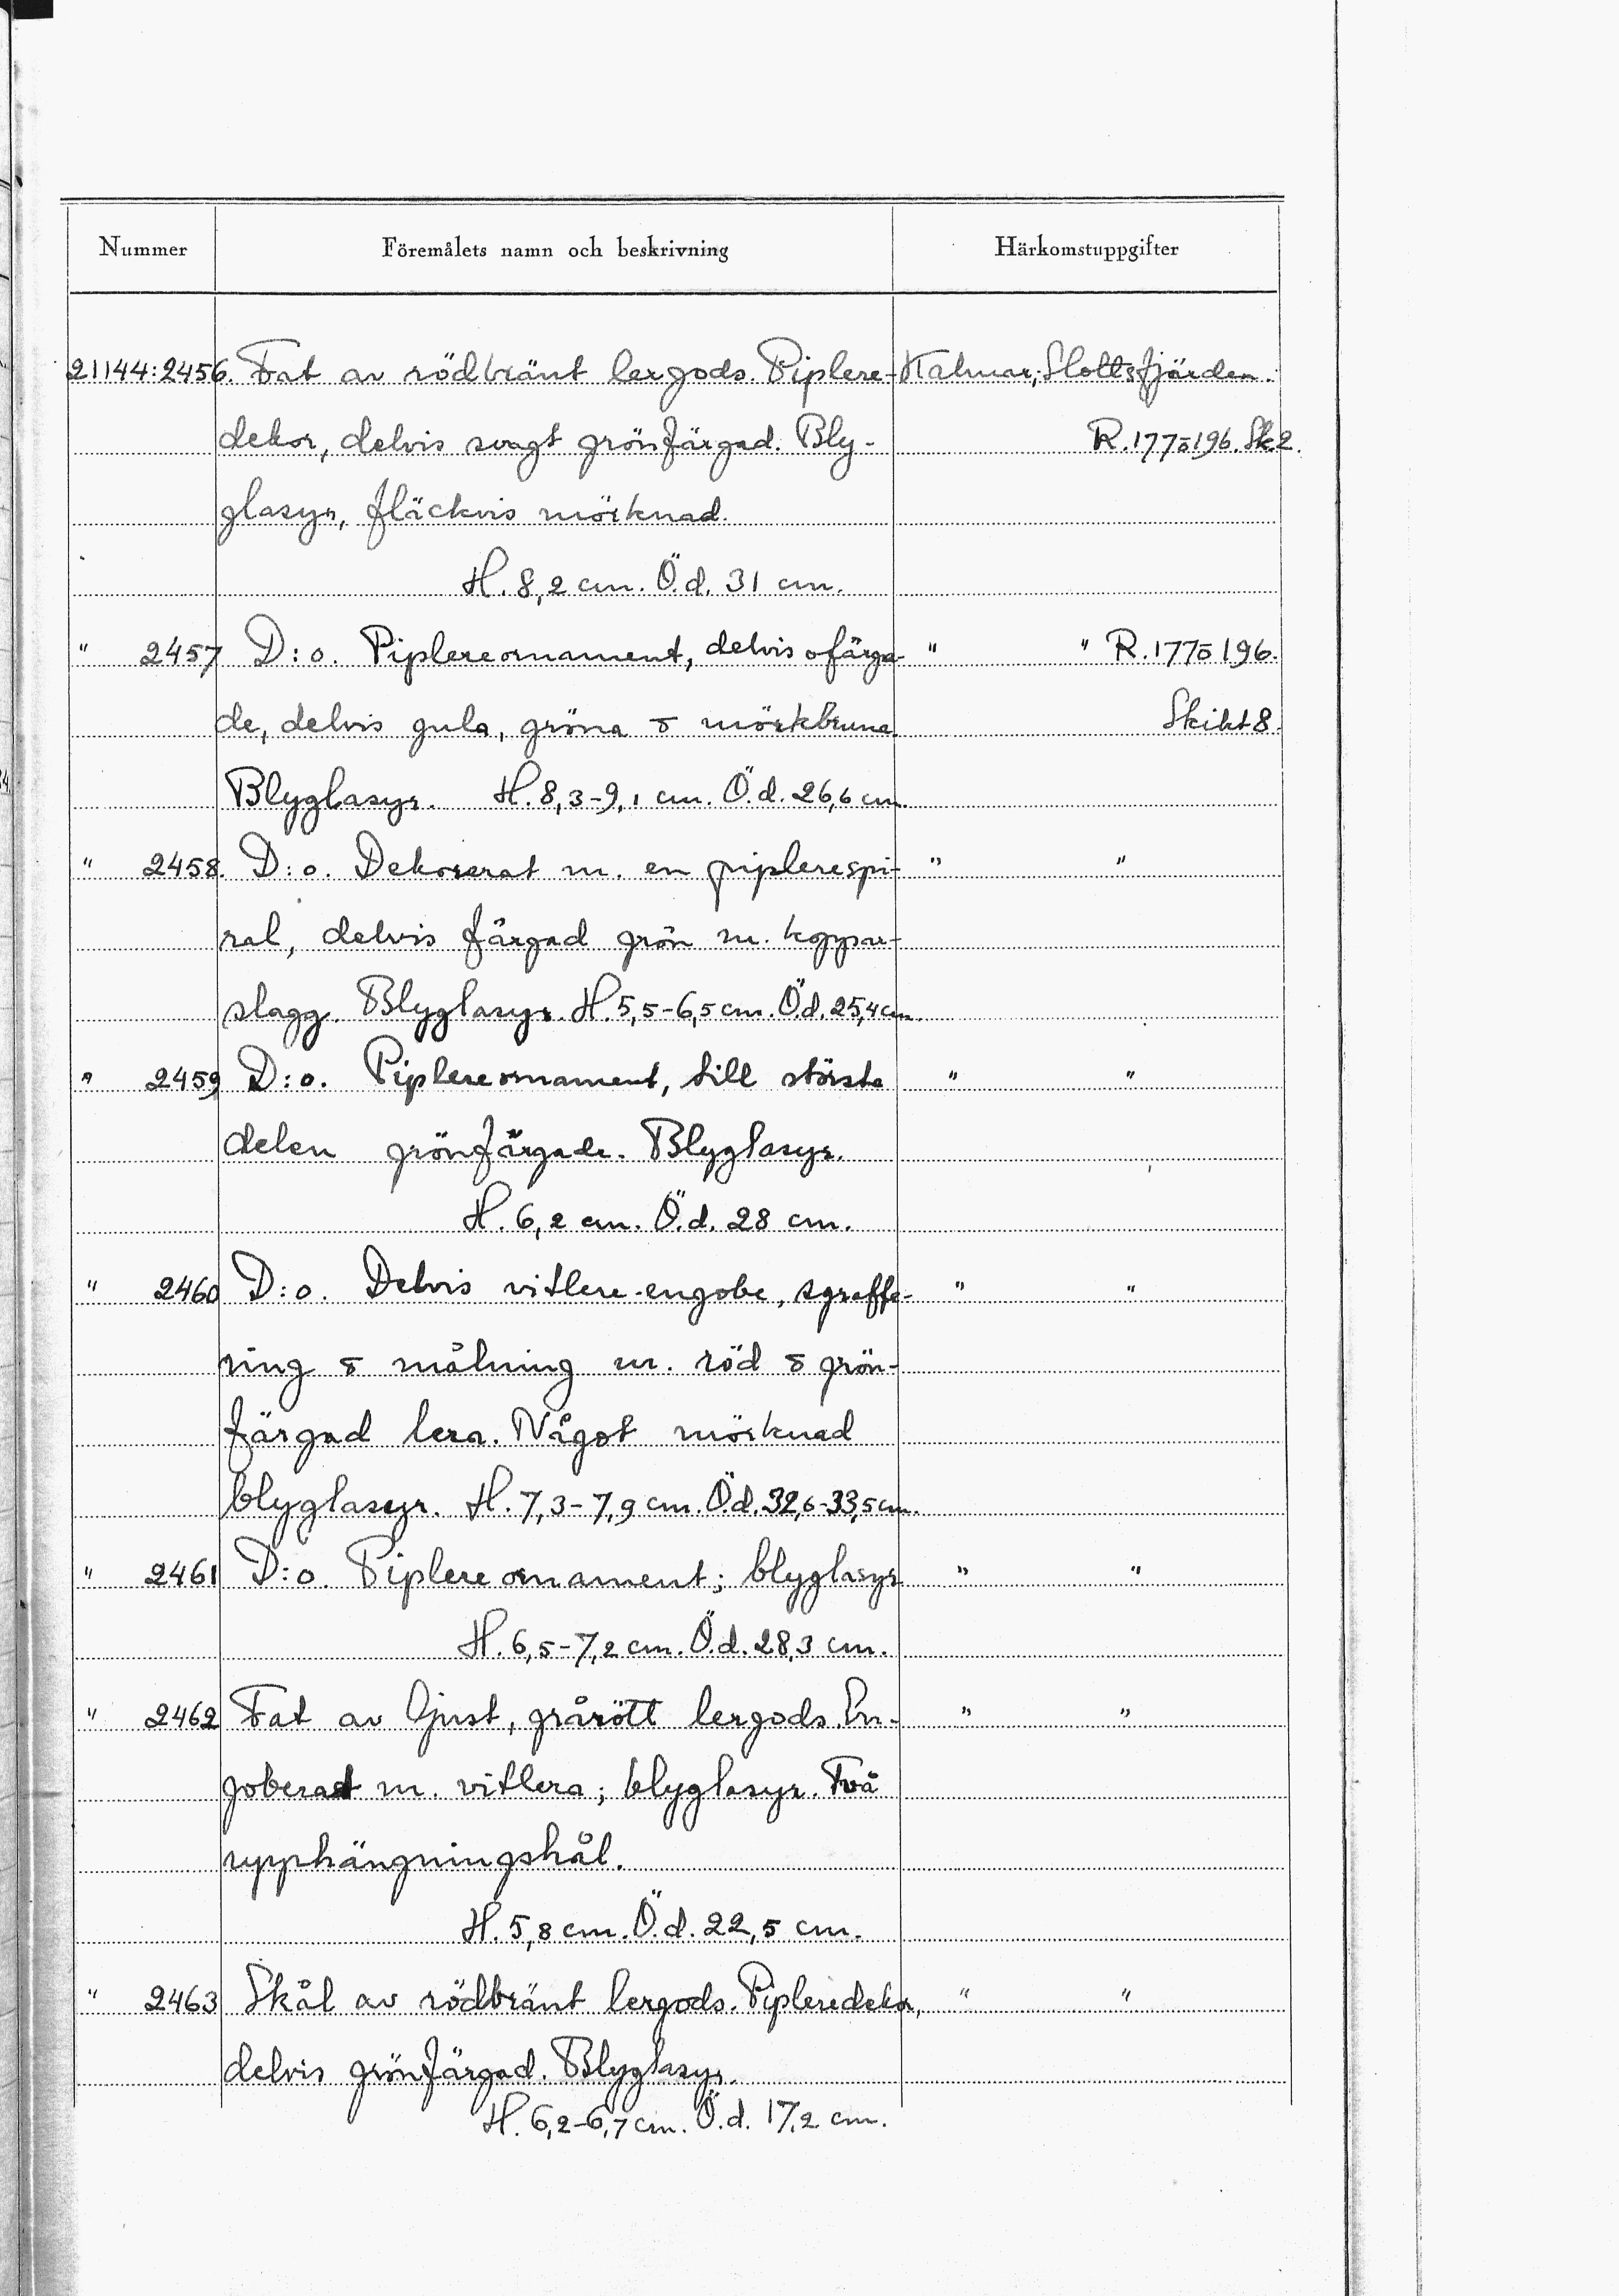 Nummer Föremålets namn och beskrivning Härkomstuppgifter
21144:2456. Fat av rödbränt lergods. Piplere- Kalmar, Slottsfjärden.
dekor, delvis svagt grönfärgad. Bly- R. 177 o 196. Sk. 2.
glasyr, fläckvis mörknad.
H. 8,2 cm. Ö.d. 31 cm.
" 2457 D:o. Piplereornament, delvis ofärga- " " R. 177 o 196.
de, delvis gula, gröna o mörkbruna. Skikt 8.
Blyglasyr. H. 8,3-9,1 cm. Ö.d. 26,6 cm.
" 2458. D:o. Dekorerat m. en piplerespi- " "
ral, delvis färgad grön m. koppar-
slagg. Blyglasyr. H. 5,5-6,5 cm. Ö.d. 25,4 cm.
" 2459 D:o. Piplereornament, till största " "
delen grönfärgade. Blyglasyr.
H. 6,2 cm. Ö.d. 28 cm.
" 2460 D:o. Delvis vitlere-engobe, sgraffe- " "
ring o målning m. röd o grön-
färgad lera. Något mörknad
blyglasyr. H. 7,3-7,9 cm. Ö.d. 32,6-33,5 cm.
" 2461 D:o. Piplereornament; blyglasyr " "
H. 6,5-7,2 cm. Ö.d. 28,3 cm.
" 2462 Fat av ljust, grårött lergods. En- " "
goberat m. vitlera; blyglasyr. Två
upphängningshål.
H. 5,8 cm. Ö.d. 22,5 cm.
" 2463 Skål av rödbränt lergods. Pipleredekor, " "
delvis grönfärgad. Blyglasyr.
H. 6,2-6,7 cm. Ö.d. 17,2 cm.